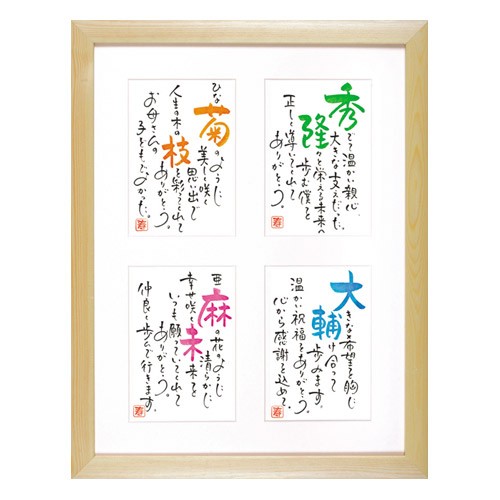 秀でて温かい親心
大きな支えだった
隆々と栄える未来へ
歩む僕を
正しく導いてくれて
ありがとう。
寿
ひな菊のように
美しく咲く
思い出で
人生の木の
枝を彩ってくれて
ありがとう。
お母さんの
子どもで、よかった。
寿
大きな希望を胸に
輔け合って
歩みます。
温かい祝福をありがとう。
心から感謝を込めて。
寿
亜麻の花のように
清らかに
幸せ咲く未来を
いつも願っていてくれて
ありがとう。
仲良く歩んで行きます。
寿